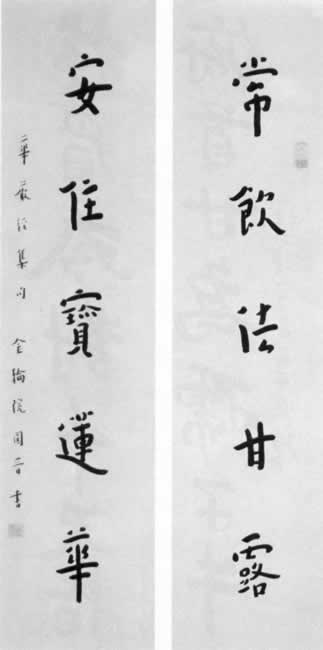 常飲法甘露
安住寶蓮華
華嚴經集句 金輪院書